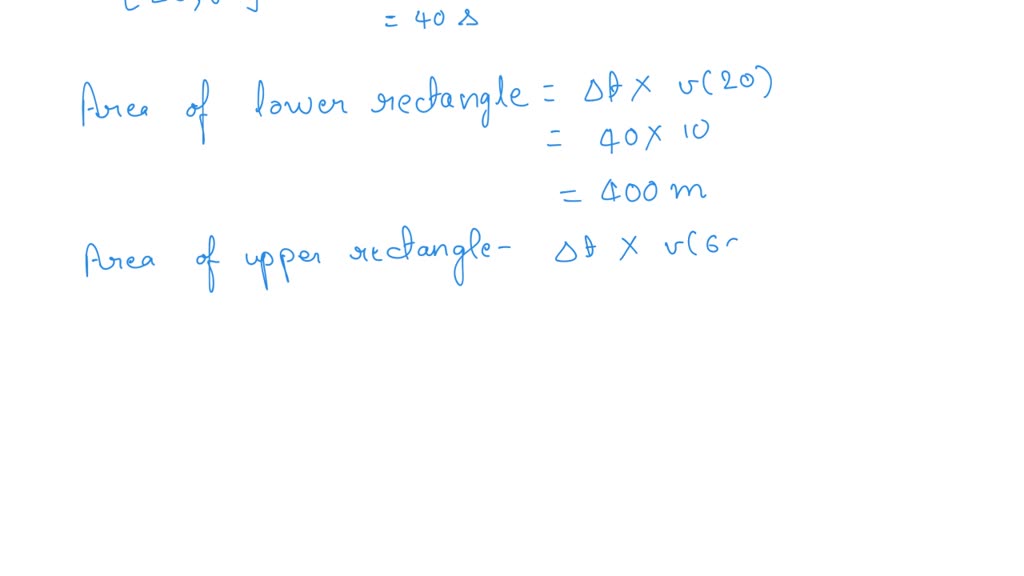 = 40 s
Area of lower rectangle = Δt × v(20)
= 40 × 10
= 400 m
Area of upper rectangle - Δt × v(6